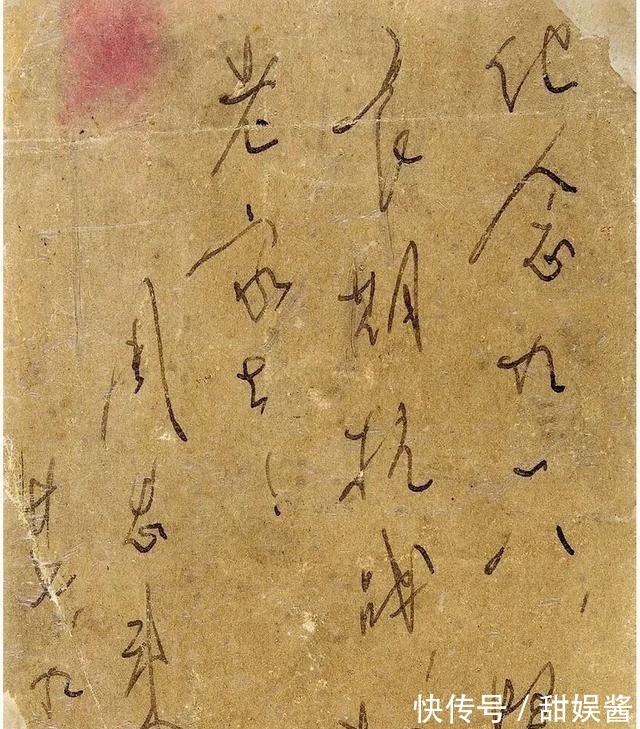 纪念九一八，
长期抗战，
老家去！
周恩来
廿七、九
快传号 / 甜娱酱